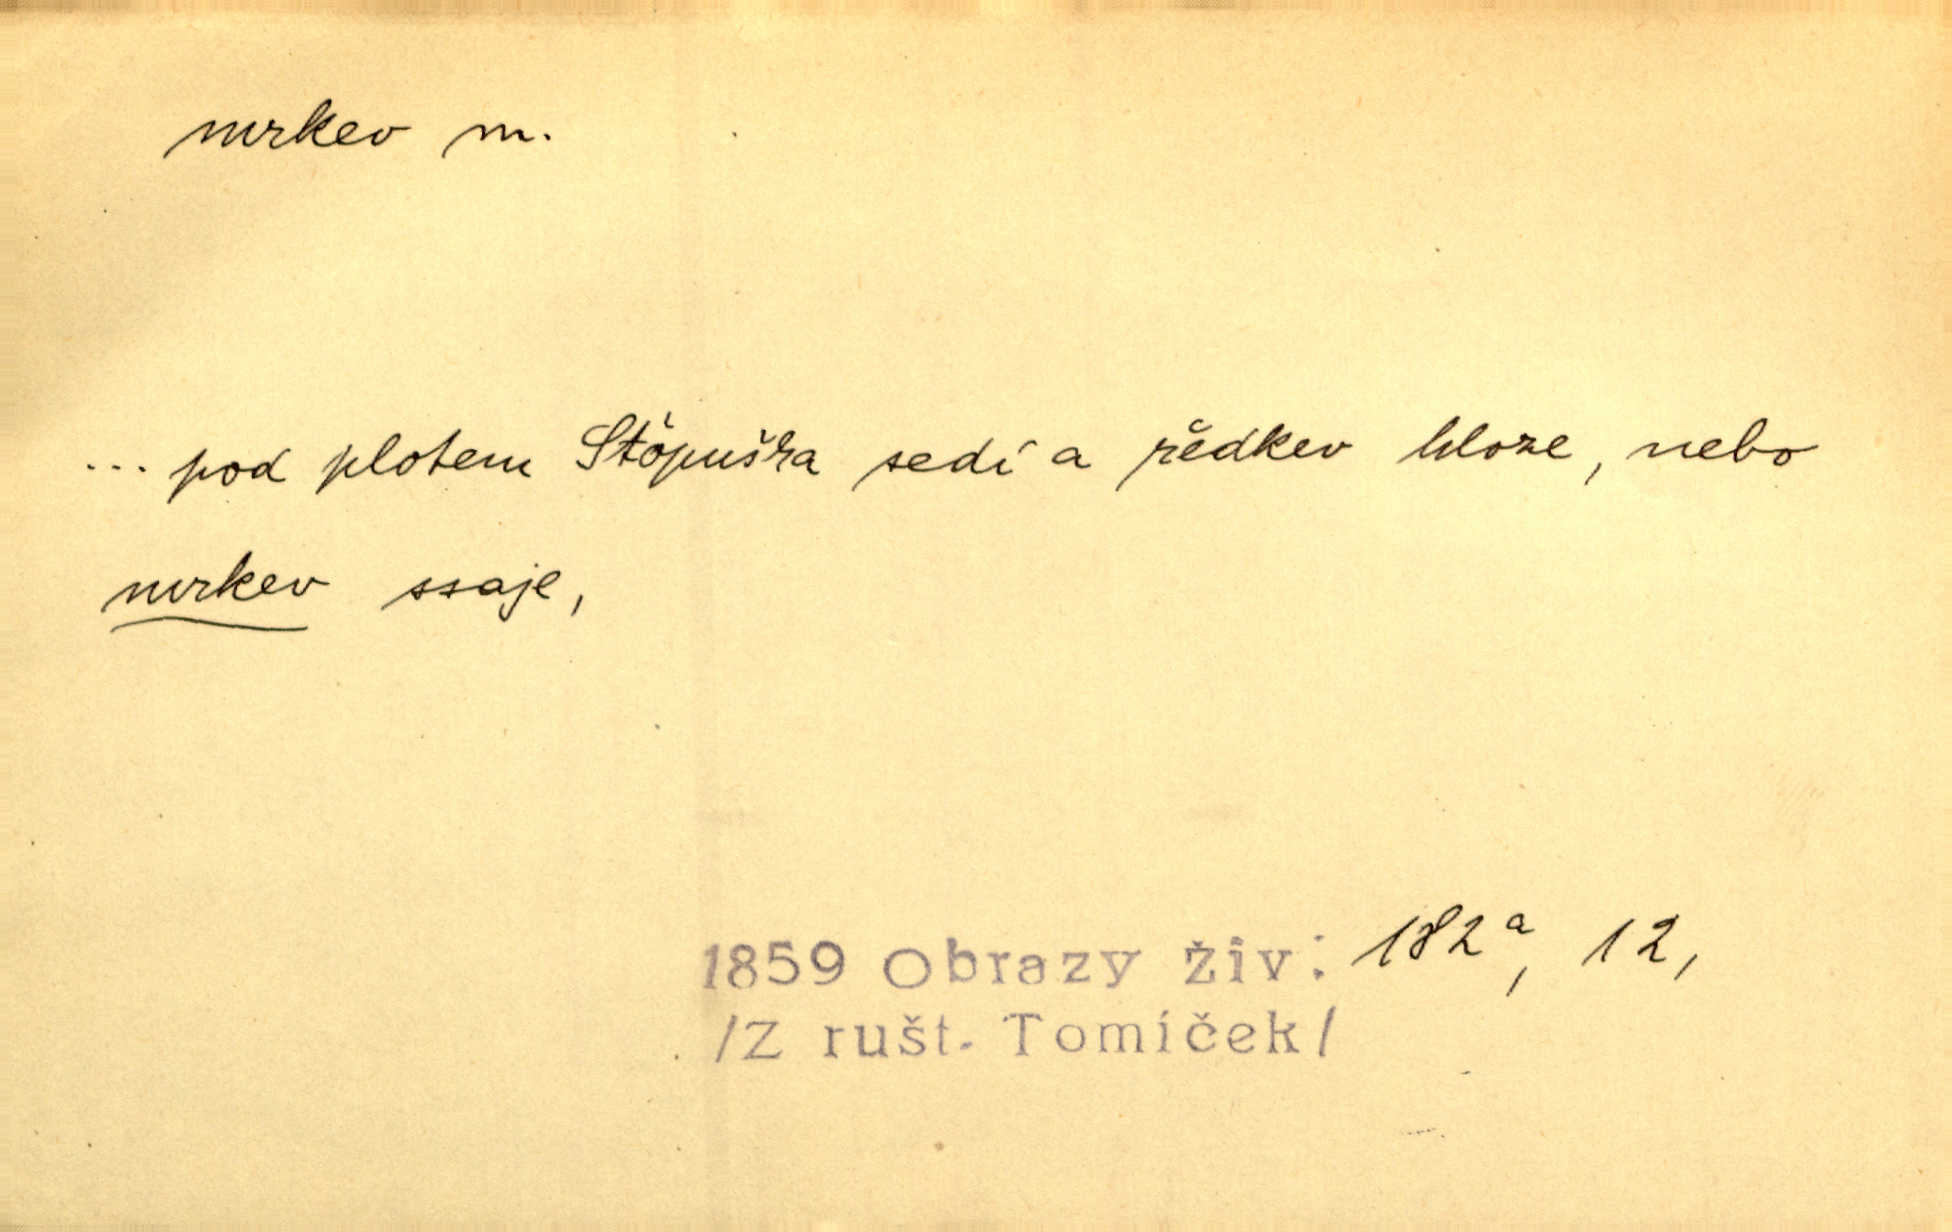 mrkev m.
... pod plotem Stöpuška sedí a ředkev hloze, nebo
mrkev ssaje,
1859 Obrazy živ: 182ª, 12,
/Z rušt. Tomíček/